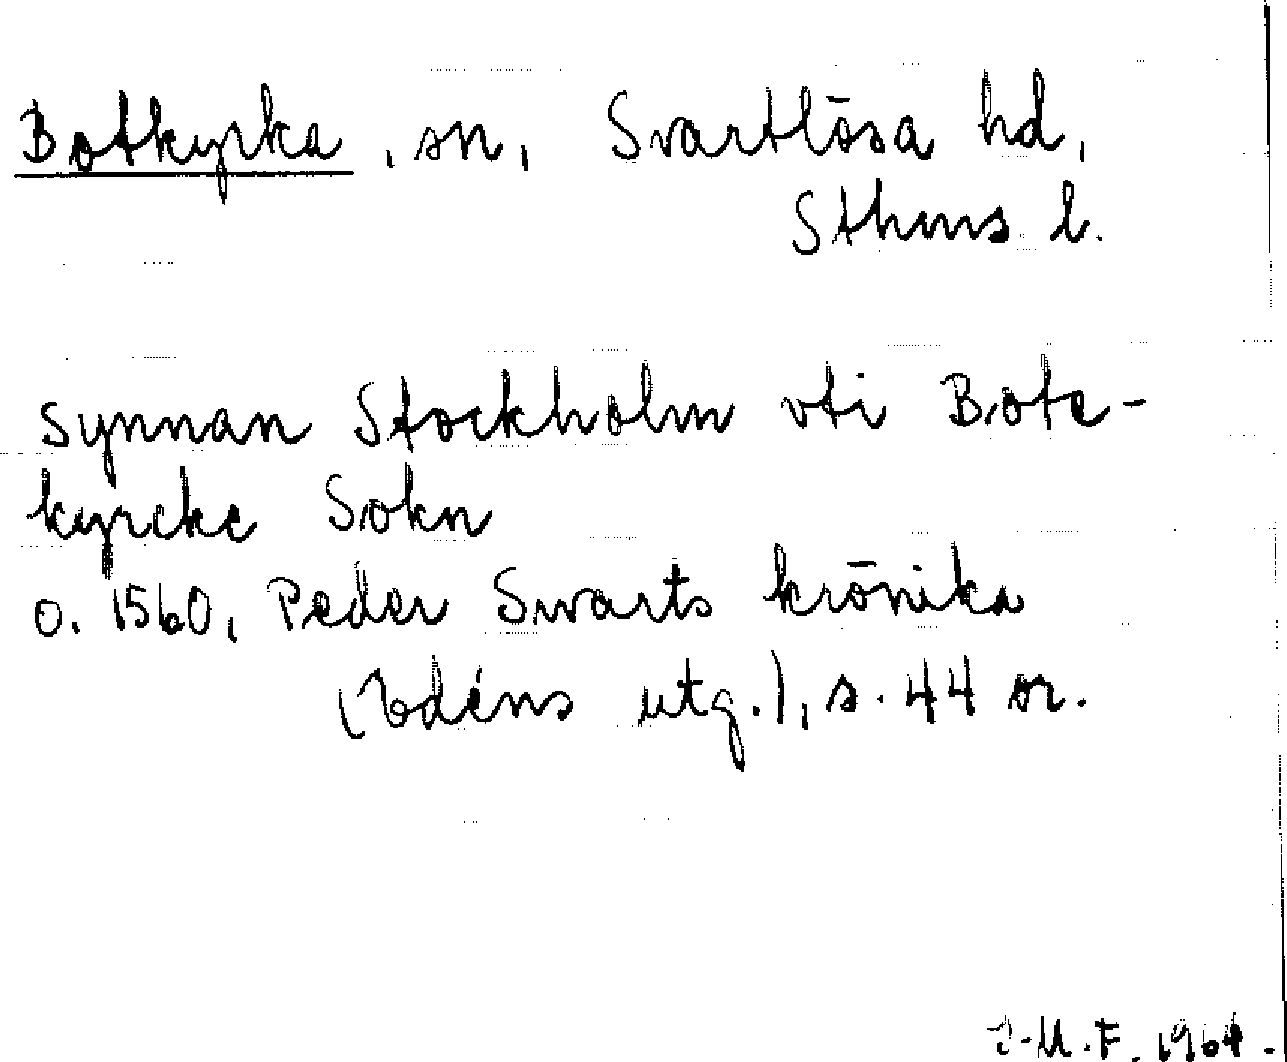 Botkyrka, sn, Svartlösa hd,
Sthms l.
synnan Stockholm vti Bote-
kyrcke Sokn
o. 1560, Peder Swarts krönika
(Edéns utg.), s. 44 or.
J-M.F. 1964.